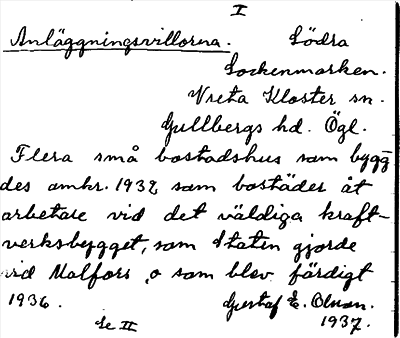 I
Anläggningsvillorna. Södra
Sockenmarken.
Vreta Kloster sn.
Gullbergs hd. Ögl.
Flera små bostadshus som bygg-
des omkr. 1932 som bostäder åt
arbetare vid det väldiga kraft-
verksbygget, som Staten gjorde
vid Malfors, o som blev färdigt
1936. Gustaf E. Olsson.
Se II 1937.